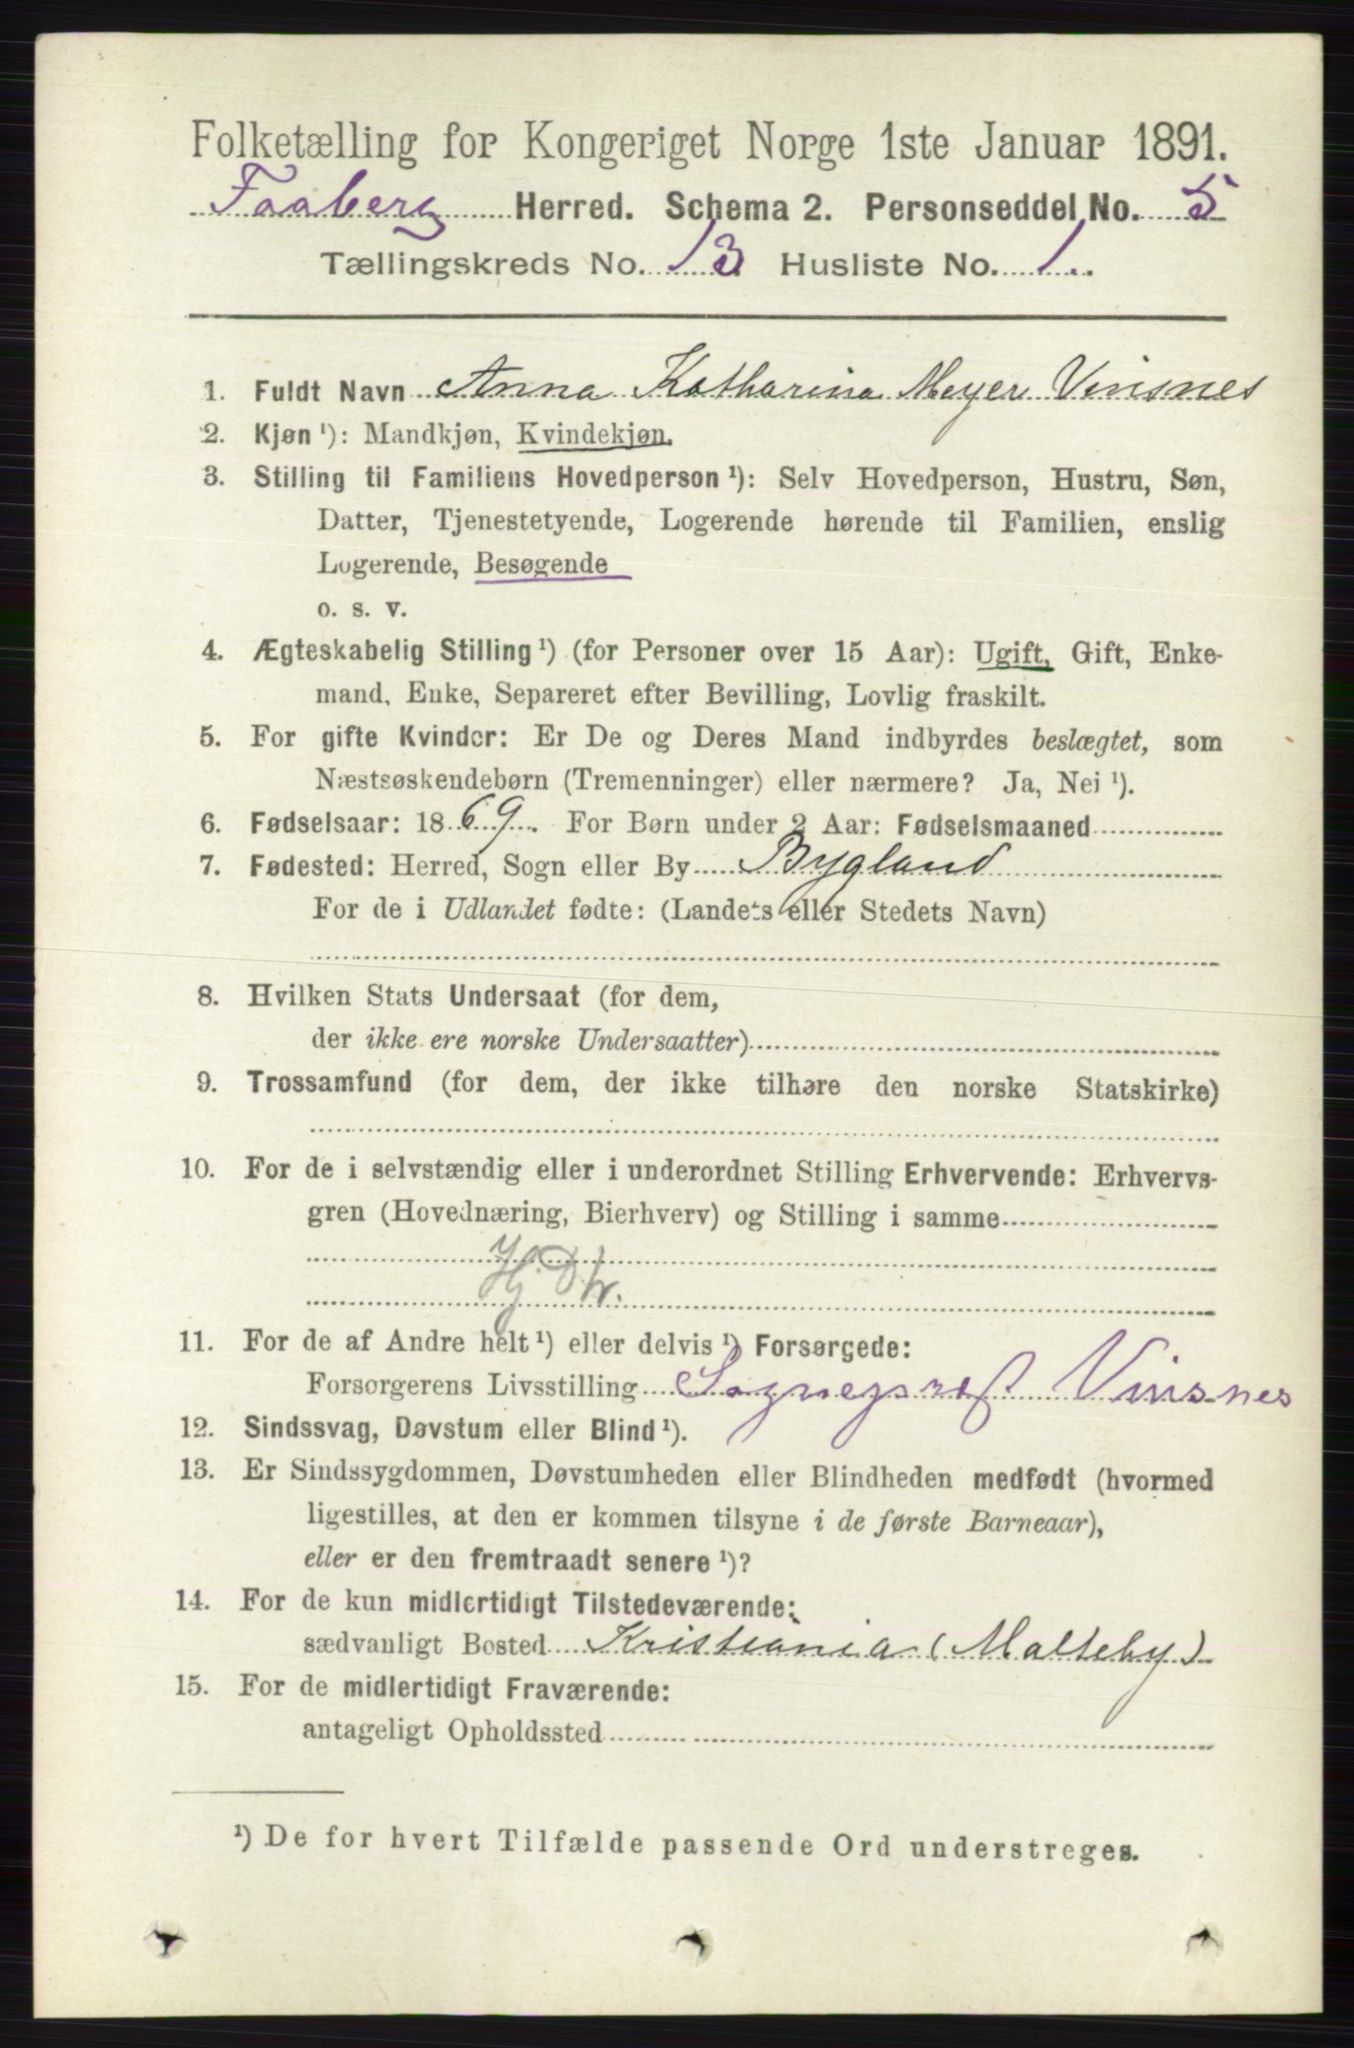 Folketælling for Kongeriget Norge 1ste Januar 1891.
Faaberg Herred. Schema 2. Personseddel No. 5
Tællingskreds No. 13 Husliste No. 1.
1. Fuldt Navn Anna Katharina Meyer Vinsnes
2. Kjøn ¹): Mandkjøn, Kvindekjøn.
3. Stilling til Familiens Hovedperson ¹): Selv Hovedperson, Hustru, Søn,
Datter, Tjenestetyende, Logerende hørende til Familien, enslig
Logerende, Besøgende
o. s. v.
4. Ægteskabelig Stilling ¹) (for Personer over 15 Aar): Ugift, Gift, Enke-
mand, Enke, Separeret efter Bevilling, Lovlig fraskilt.
5. For gifte Kvinder: Er De og Deres Mand indbyrdes beslægtet, som
Næstsøskendebørn (Tremenninger) eller nærmere? Ja, Nei ¹).
6. Fødselsaar: 1869. For Børn under 2 Aar: Fødselsmaaned
7. Fødested: Herred, Sogn eller By Bygland
For de i Udlandet fødte: (Landets eller Stedets Navn)
8. Hvilken Stats Undersaat (for dem,
der ikke ere norske Undersaatter)
9. Trossamfund (for dem, der ikke tilhøre den norske Statskirke)
10. For de i selvstændig eller i underordnet Stilling Erhvervende: Erhvervs-
gren (Hovednæring, Bierhverv) og Stilling i samme
11. For de af Andre helt ¹) eller delvis ¹) Forsørgede:
Forsørgerens Livsstilling Sognepræst Vinsnes
12. Sindssvag, Døvstum eller Blind ¹).
13. Er Sindssygdommen, Døvstumheden eller Blindheden medfødt (hvormed
ligestilles, at den er kommen tilsyne i de første Barneaar),
eller er den fremtraadt senere ¹)?
14. For de kun midlertidigt Tilstedeværende:
sædvanligt Bosted Kristiania (Malteby)
15. For de midlertidigt Fraværende:
antageligt Opholdssted
¹) De for hvert Tilfælde passende Ord understreges.